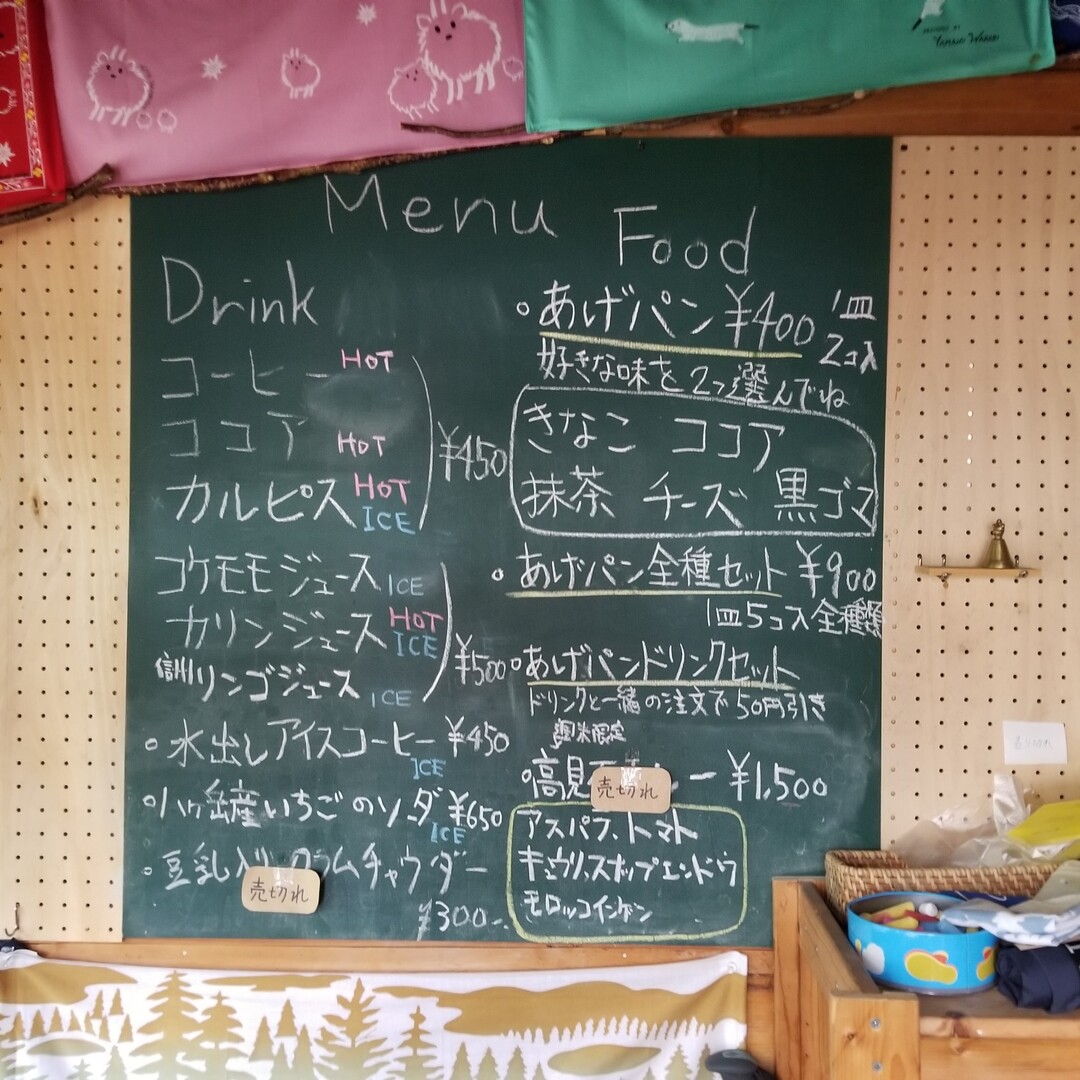 Menu
Drink
コーヒー HOT
ココア HOT
カルピス HOT ICE
¥450
コケモモジュース ICE
カリンジュース HOT ICE
信州リンゴジュース ICE
¥500
水出しアイスコーヒー ¥450
ICE
八ヶ岳産いちごのソーダ ¥650
ICE
豆乳入り ラムチャウダー
売切れ
¥300
Food
あげパン ¥400 1皿 2コ入
好きな味を2つ選んでね
きなこ ココア
抹茶 チーズ 黒ゴマ
あげパン全種セット ¥900
1皿5コ入全種類
あげパンドリンクセット
ドリンクと一緒の注文で50円引き
週末限定
高見 ー ¥1,500
売切れ
アスパラ、トマト
キュウリ、スナップエンドウ
モロッコインゲン